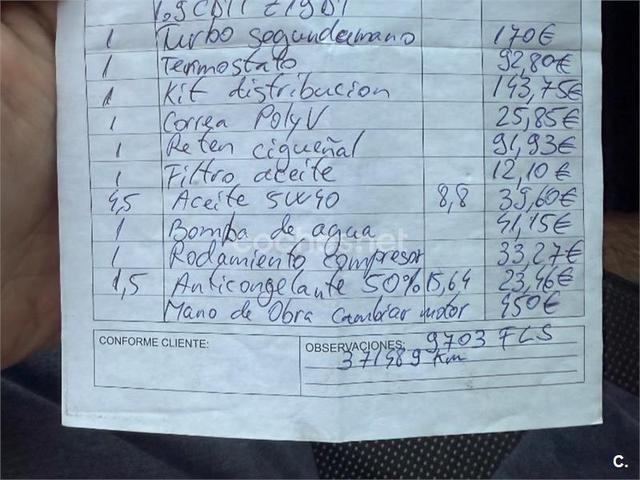 1 Turbo segundamano 170€
1 Termostato 92,80€
1 Kit distribucion 143,75€
1 Correa PolyV 25,85€
1 Reten cigueñal 91,93€
1 Filtro aceite 12,10€
4,5 Aceite 5W40 8,8 39,60€
1 Bomba de agua 41,15€
coches.net
1 Rodamiento compresor 33,27€
1,5 Anticongelante 50% 15,64 23,46€
Mano de Obra cambiar motor 450€
CONFORME CLIENTE:
OBSERVACIONES: 9703 FLS
371489 Km
C.